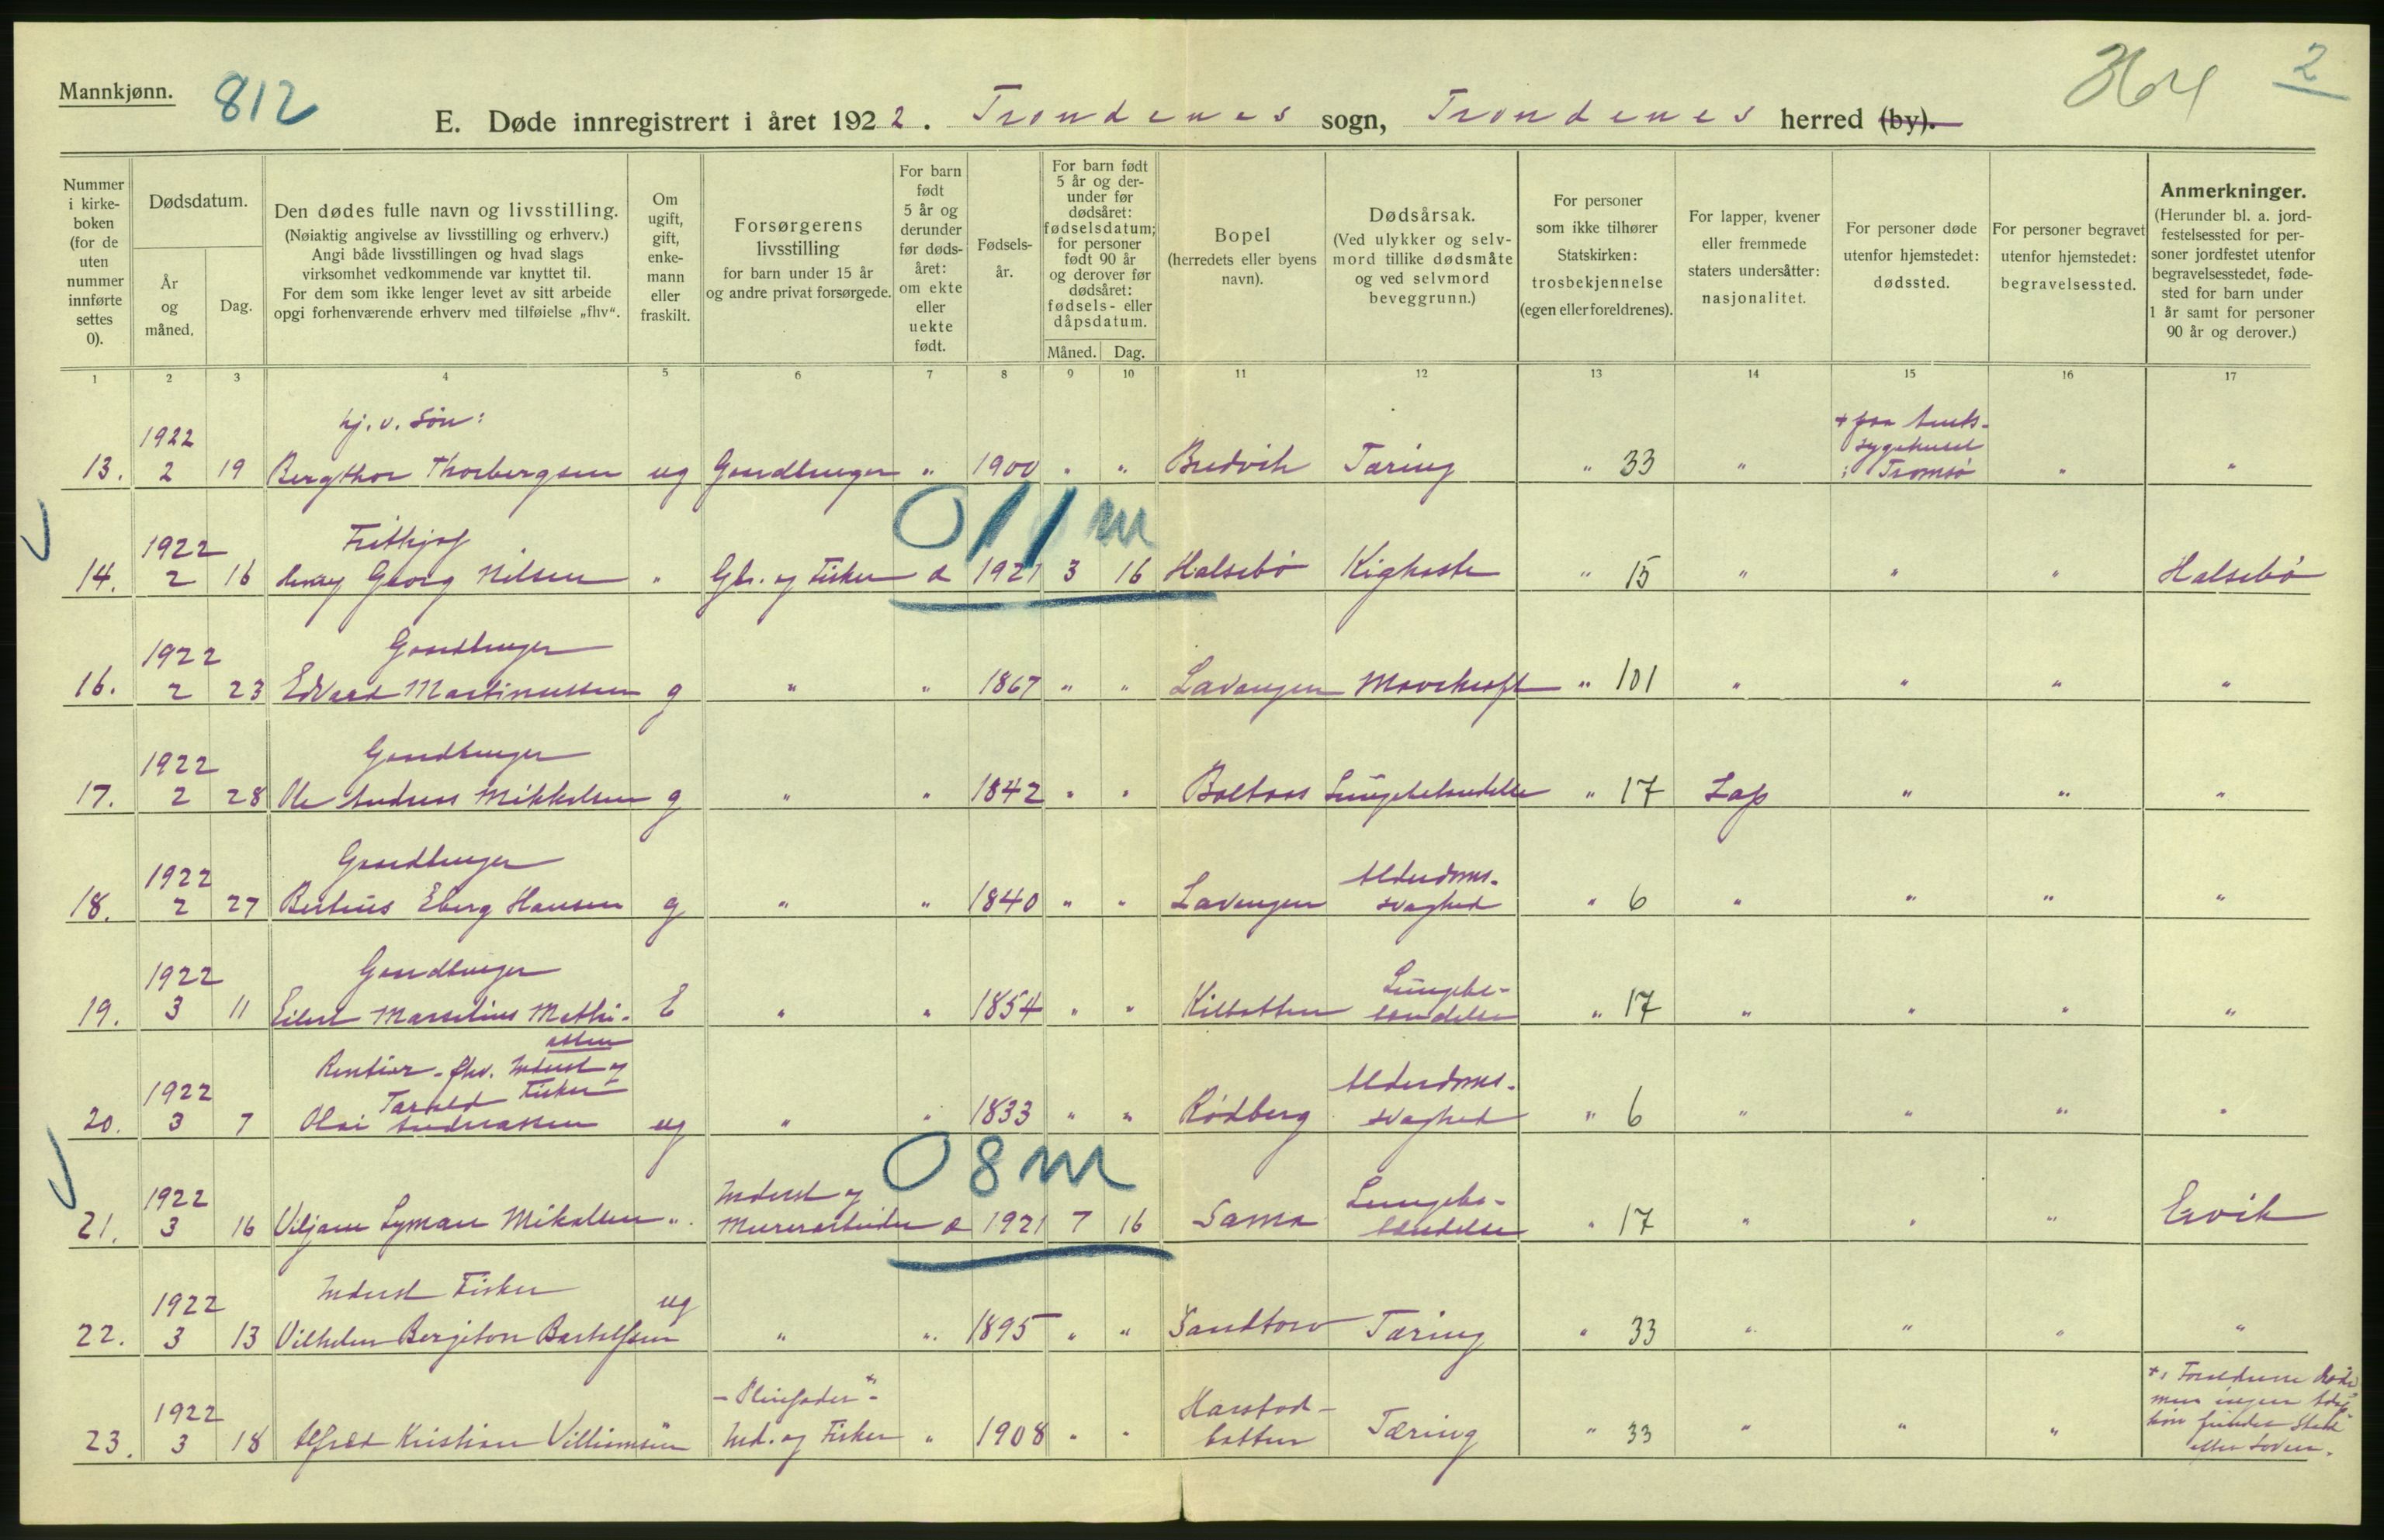 Mannkjønn.
812
364
2
E. Døde innregistrert i året 1922. Trondenes sogn, Trondenes herred (by).
Nummer i kirke- boken (for de uten nummer innførte settes 0).
Dødsdatum.
År og måned.
Dag.
Den dødes fulle navn og livsstilling.
(Nøiaktig angivelse av livsstilling og erhverv.)
Angi både livsstillingen og hvad slags
virksomhet vedkommende var knyttet til.
For dem som ikke lenger levet av sitt arbeide
opgi forhenværende erhverv med tilføielse „fhv“.
Om ugift, gift, enke- mann eller fraskilt.
Forsørgerens livsstilling
for barn under 15 år
og andre privat forsørgede.
For barn født 5 år og derunder før døds- året: om ekte eller uekte født.
Fødsels- år.
For barn født 5 år og der- under før dødsåret: fødselsdatum; for personer født 90 år og derover før dødsåret: fødsels- eller dåpsdatum.
Måned.
Dag.
Bopel
(herredets eller byens navn).
Dødsårsak.
(Ved ulykker og selv- mord tillike dødsmåte og ved selvmord beveggrunn.)
For personer som ikke tilhører Statskirken: trosbekjennelse (egen eller foreldrenes).
For lapper, kvener eller fremmede staters undersåtter: nasjonalitet.
For personer døde utenfor hjemstedet: dødssted.
For personer begravet utenfor hjemstedet: begravelsessted.
Anmerkninger.
(Herunder bl. a. jord- festelsessted for per- soner jordfestet utenfor begravelsesstedet, føde- sted for barn under 1 år samt for personer 90 år og derover.)
1 2 3 4 5 6 7 8 9 10 11 12 13 14 15 16 17
hj. v. Søn:
+ paa Amts-
sygehuset
i Tromsø
1922
13. 2 19 Bergthor Thorbergsen ug Gaardbruger " 1900 " " Bredvik Tæring " 33 " " "
011 m
1922 Frithjof
14. 2 16 Henry Georg Nilsen " Gbr. og Fisker æ 1921 3 16 Halsebø Kighoste " 15 " " " Halsebø
1922 Gaardbruger
16. 2 23 Edvard Martinussen g " " 1867 " " Lavangen Mavekræft " 101 " " " "
1922 Gaardbruger
17. 2 28 Ole Andreas Mikkelsen g " " 1842 " " Boltaas Lungebetændelse " 17 Lap " " "
1922 Gaardbruger Alderdoms-
18. 2 27 Bertius Eberg Hansen g " " 1840 " " Lavangen svaghed " 6 " " " "
1922 Gaardbruger Lungebe-
19. 3 11 Eilert Marselius Mathi- E " " 1854 " " Kilbotten tændelse " 17 " " " "
assen
Rentier - fhv. Inderst og
Fisker
1922 Tarald Alderdoms-
20. 3 7 Olai Andreassen ug " " 1833 " " Rødberg svaghed " 6 " " " "
08 m
1922 Inderst og Lungebe-
21. 3 16 Viljam Lyman Mikalsen " Murerarbeider æ 1921 7 16 Sama tændelse " 17 " " " Ervik
1922 Inderst Fisker ug
22. 3 13 Vilhelm Bergeton Bartolfsen " " 1895 " " Sandtorv Tæring " 33 " " " "
1922 - Pleiefader + - Harstad-
23. 3 18 Alfred Kristian Villiamsen Ind. og Fisker " 1908 " " botten Tæring " 33 " " "
+, Forældrene døde
men ingen Adop-
tion
efter Loven.